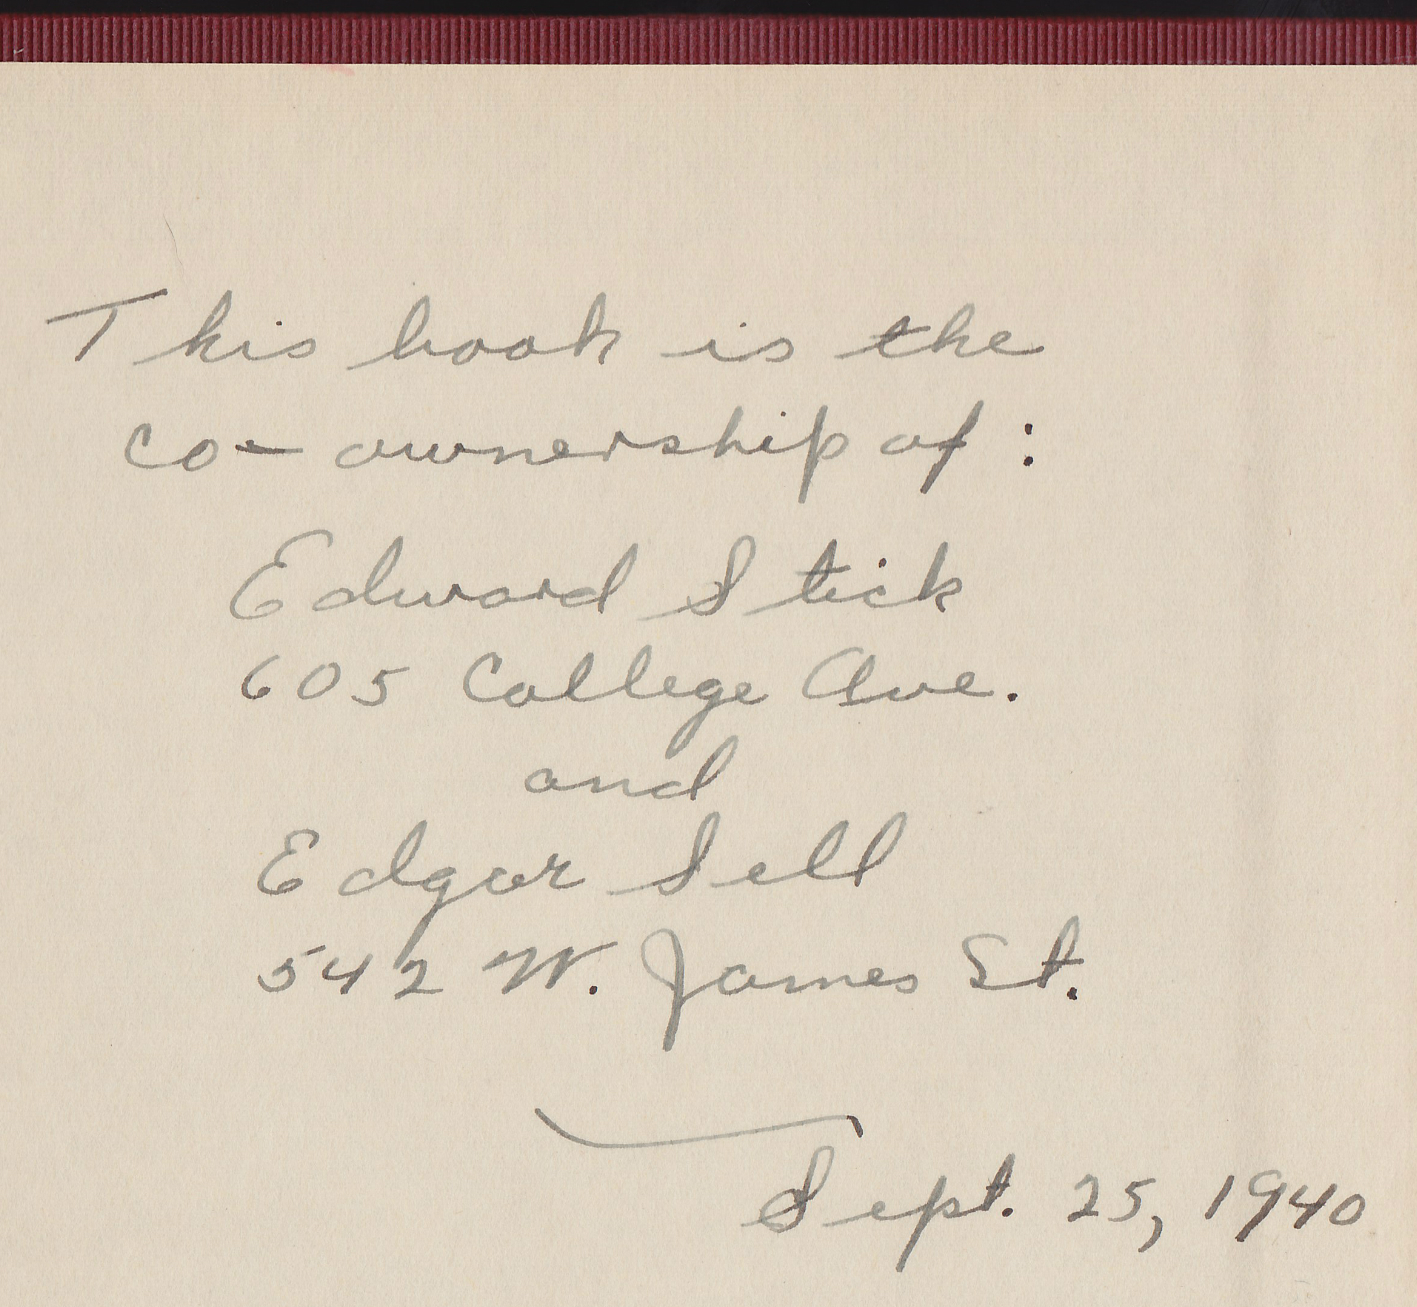 This book is the
co-ownership of:
Edward Stick
605 College Ave.
and
Edgar Sell
542 W. James St.
Sept. 25, 1940